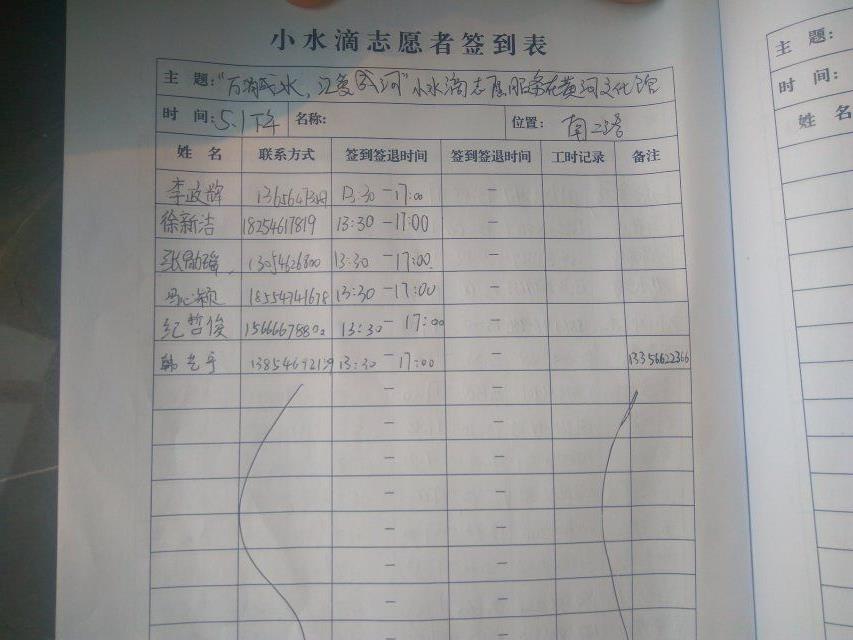 小水滴志愿者签到表
主 题:"万滴成水,汇爱成河"小水滴志愿服务在黄河文化馆
时 间:5.1下午 名称: 位置: 南二路
姓 名 联系方式 签到签退时间 签到签退时间 工时记录 备注
李政 13:30-17:00 -
徐新洁 18254617819 13:30-17:00 -
张 13054626800 13:30-17:00 -
马心颖 18554741678 13:30-17:00 -
纪哲俊 15666678802 13:30-17:00 -
韩艺 13:30-17:00 - 13356622366
- -
- -
- -
- -
- -
- -
- -
- -
主 题:
时 间:
姓 名